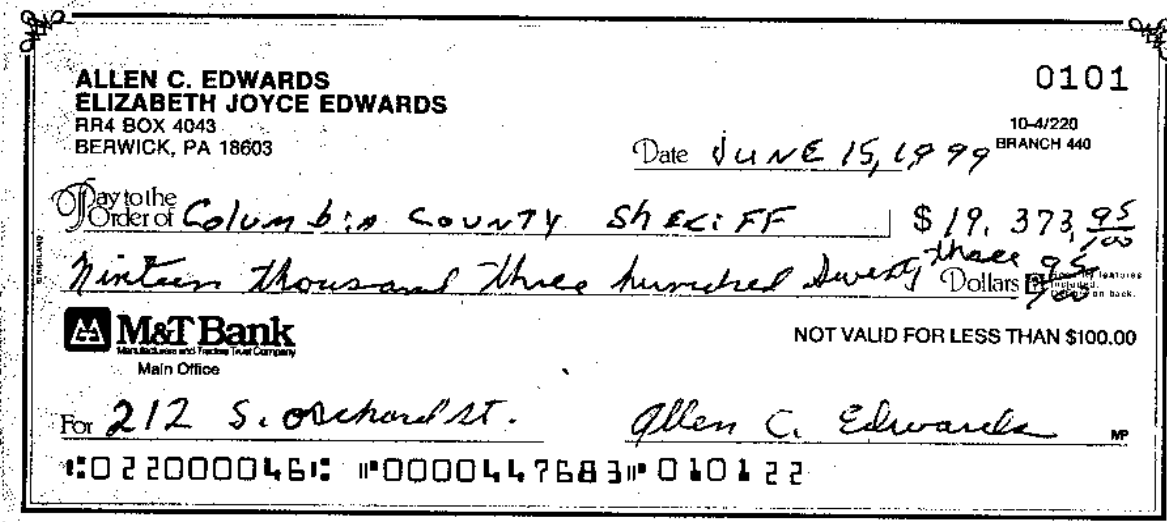 0101
ALLEN C. EDWARDS
ELIZABETH JOYCE EDWARDS
RR4 BOX 4043
BERWICK, PA 18603
10-4/220
BRANCH 440
Date JUNE 15, 1999
Pay to the Order of Columbia County Sheriff $ 19,373, 95/100
Nineteen thousand three hundred three 95/100 Dollars
included. on back.
M&T Bank
Manufacturers and Traders Trust Company
Main Office
NOT VALID FOR LESS THAN $100.00
For 212 S. Orchard St. Allen C. Edwards
MP
⑆022000046⑆ ⑈0000447683⑈ 010122